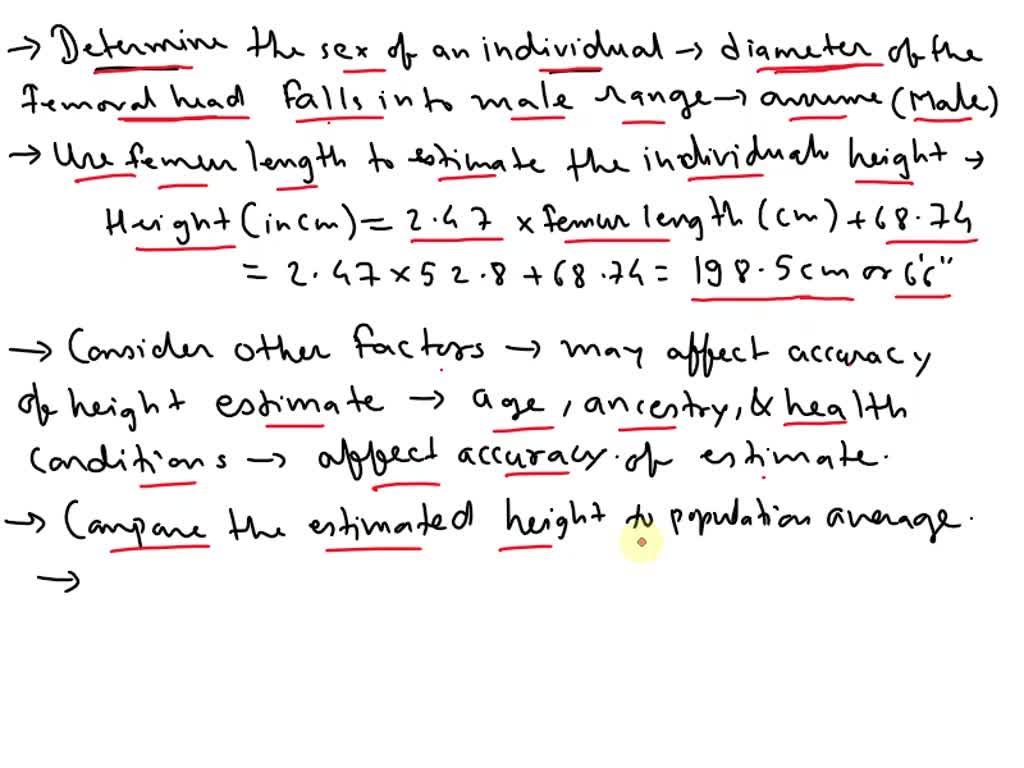 → Determine the sex of an individual → diameter of the
femoral head falls into male range → assume (Male)
→ Use femur length to estimate the individuals height →
Height (in cm) = 2.47 x femur length (cm) + 68.74
= 2.47 x 52.8 + 68.74 = 198.5 cm or 6'6"
→ Consider other factors → may affect accuracy
of height estimate → age, ancestry, & health
conditions → affect accuracy. of estimate.
→ Compare the estimated height to population average.
→